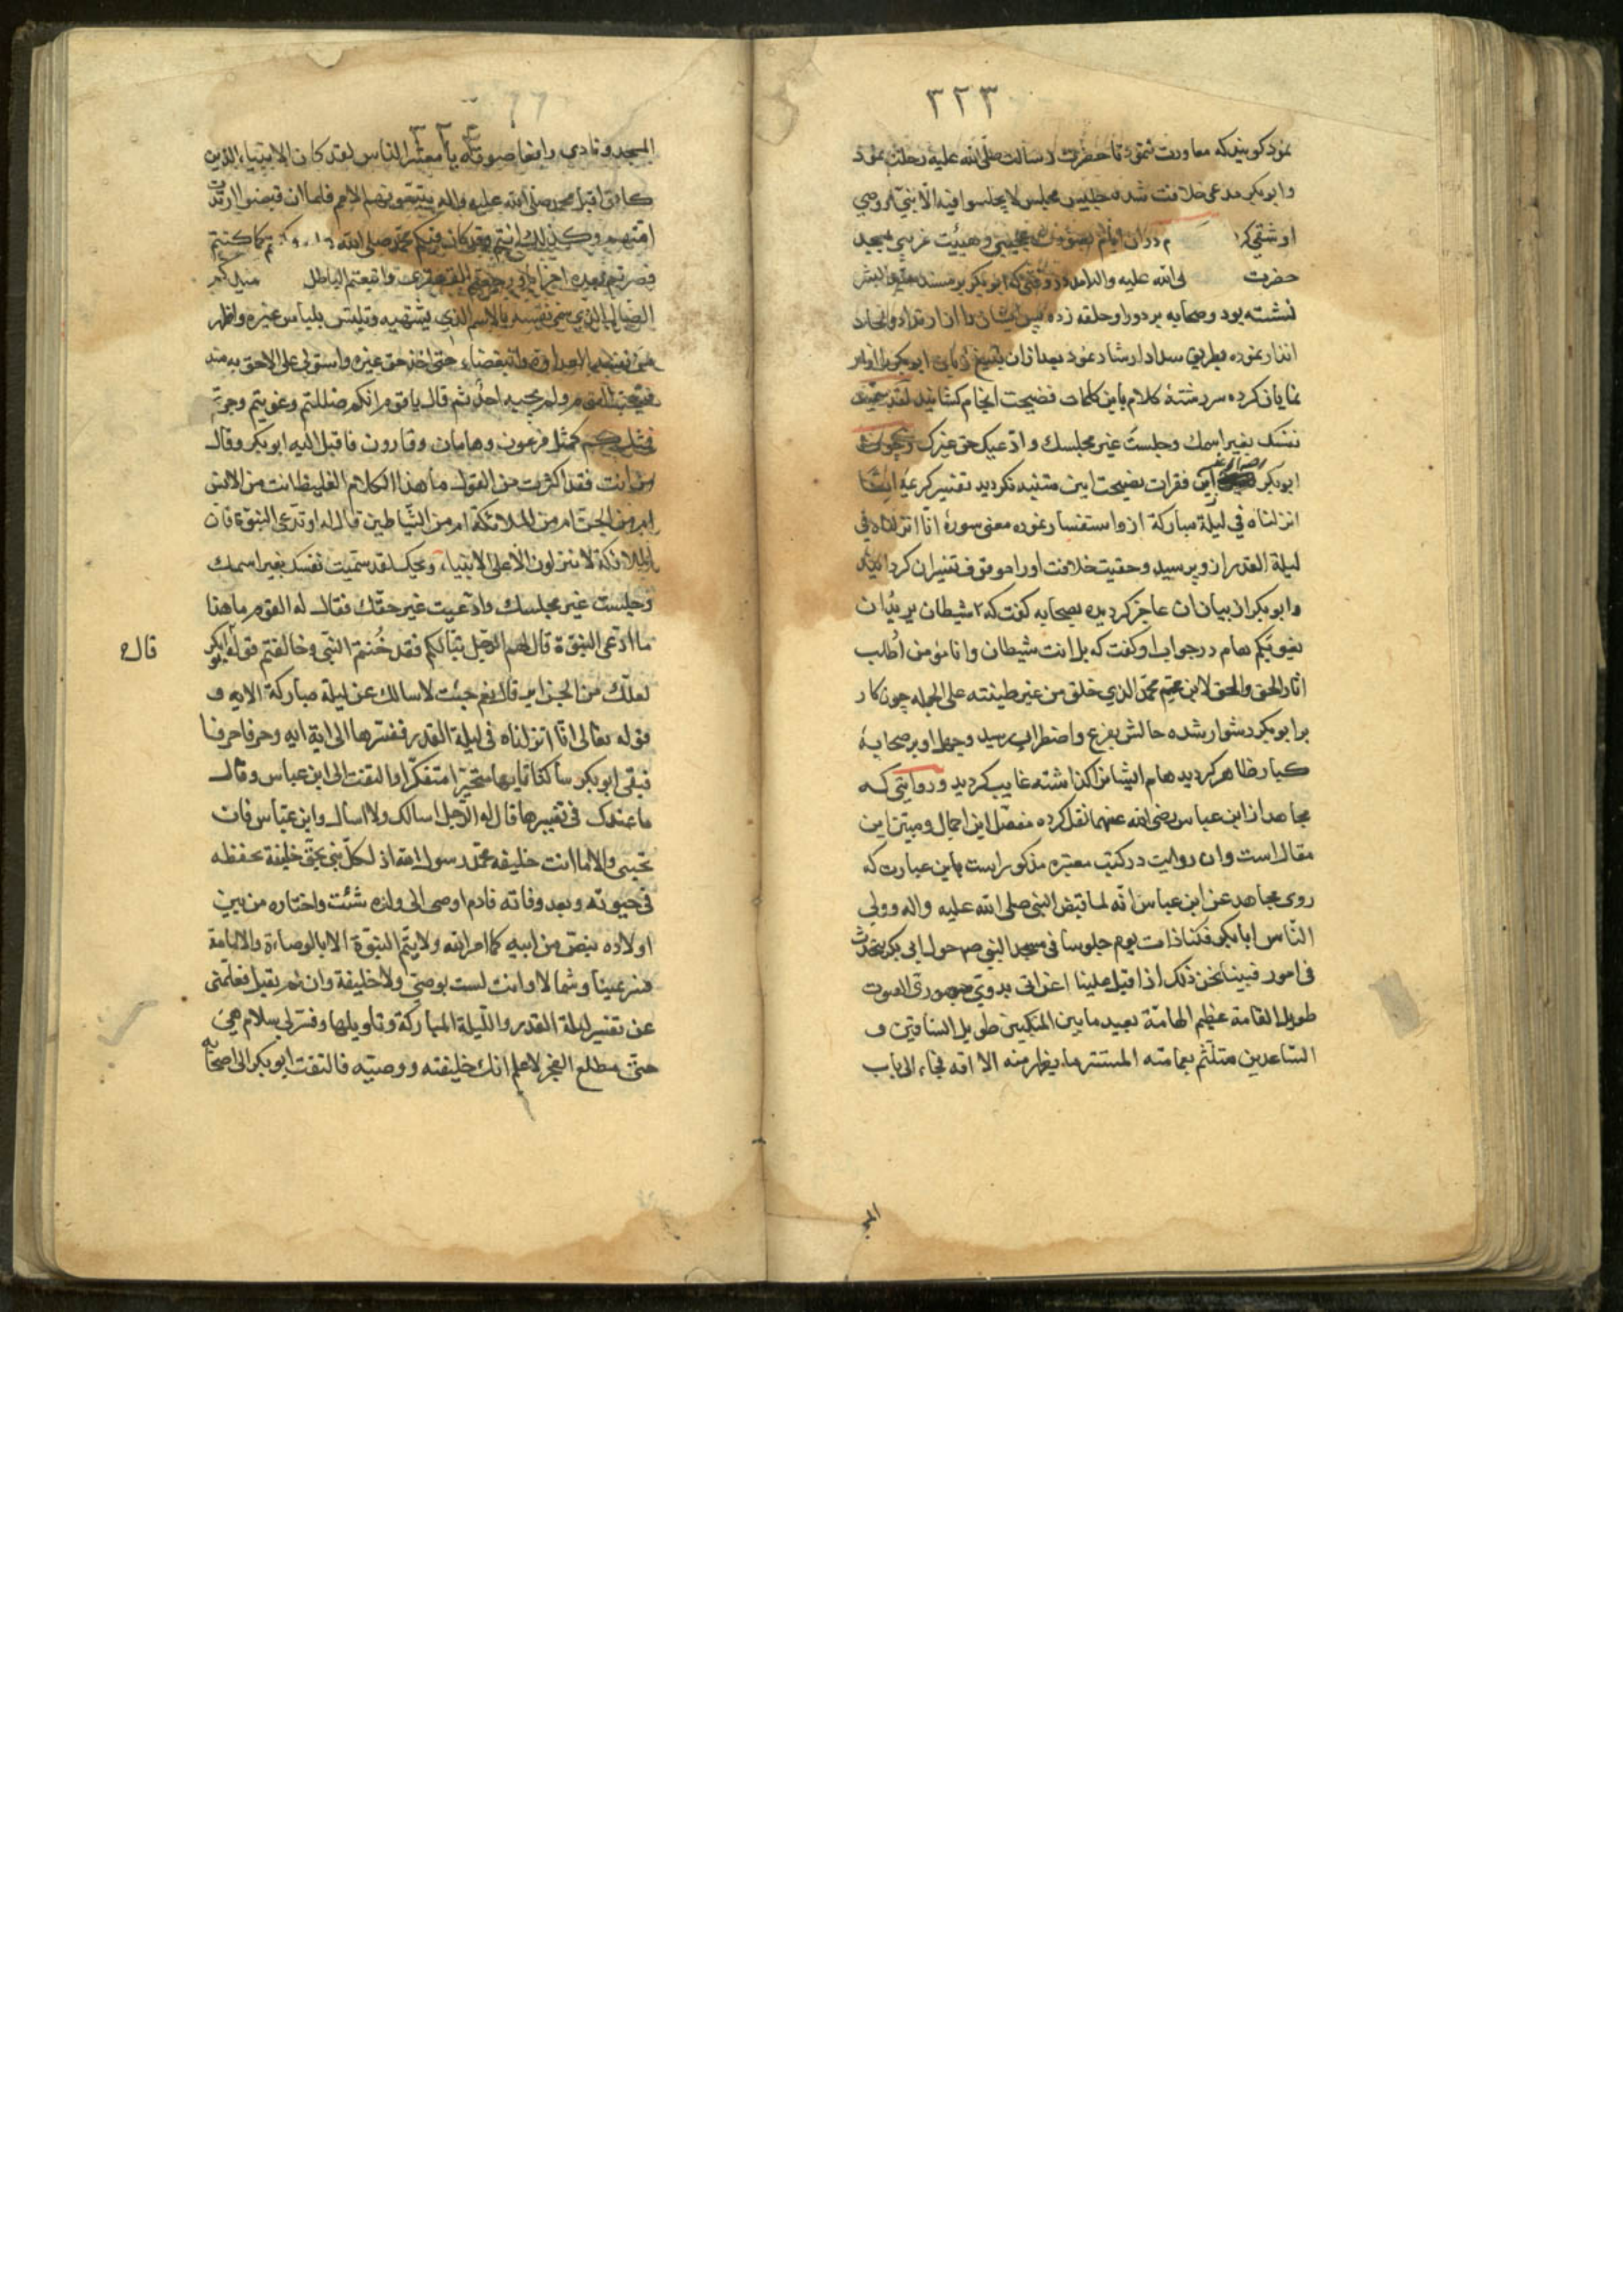 ٣٢٣
نمود کویند که معاودت ننمود تا حضرت رسالت صلی الله علیه رحلت نمود
وابوبکر مدعی خلافت شده جلیس مجلس لا یجلسوا فیه الا نبی او وصی
او شقی در آن ایام بصورت عجیبی وهیئت غریبی بمسجد
حضرت لی الله علیه واله آمد در وقتی که ابوبکر بر مسند خیر البشر
نشسته بود وصحابه بر دور او حلقه زده پس ایشان را از ارتداد والحاد
انذار نموده بطریق سداد ارشاد نمود بعد از ان ابوبکر را
نمایان کرده سر رشتهٔ کلام باین کلمات فضیحت انجام کشانید لقد سمیت
نفسک بغیر اسمک وجلست غیر مجلسک وادعیت حق غیرک
ابوبکر این فقرات نصیحت ایین متنبه نکردید تفسیر کریمهٔ انّا
انزلناه فی لیلة مبارکة از و استفسار نموده معنی سورهٔ انّا انزلناه فی
لیلة القدر از و پرسید وحقیت خلافت اورا موقوف تفسیران کردانید
وابوبکر از بیان ان عاجز کردیده بصحابه کفت که شیطان یرید ان
یغویکم هام در جواب او کفت که بل انت شیطان وانا مؤمن اطلب
اثار الحق والحق لابن عمّ محمّد الذی خلق من غیر طینته علی الجمله چون کار
بر ابوبکر دشوار شده حالش بفزع واضطراب رسید وجهل او بر صحابهٔ
کبار ظاهر کردید هام ایشانرا کذاشته غایب کردید وروایتی که
مجاهد از ابن عباس رضی الله عنهما نقل کرده مفصّل این اجمال ومبیّن این
مقال است وان روایت در کتب معتبره مذکور است باین عبارت که
روی مجاهد عن ابن عباس انّه لما قبض النبی صلی الله علیه واله وولی
النّاس ابابکر فکنا ذات یوم جلوسا فی مسجد النبی ص حول ابی بکر نتحدث
فی امور فبینا نحن ذلک اذا قبل علینا اعرابی بدوی جهوری الصوت
طویل القامة عظیم الهامّة بعید ما بین المنکبین طویل الساقین و
الساعدین متلثّم بعمامته المستتر ما یظهر منه الا انه فجاء الی باب
المج
٣٢٤
المسجد ونادی رافعا صوته یا معشر الناس لقد کان الانبیاء الذین
کانوا قبل محمد صلی الله علیه واله یتبعونهم الامم فلما ان قبضوا ارتدت
امتهم وکذلک انتم وقد کان فیکم محمّد صلی الله کما کنتم
فصرتم بعده احزابا ورجعتم القهقری واتبعتم الباطل
الضال الذی سمی نفسه بالاسم الذی یشتهیه وتلبس بلباس غیره واظهر
العداوة والبغضاء حتی اخذ حق غیره واستولی علی الاحق به منه
القوم ولم یجیبه احدٌ ثم قال یا قوم انکم ضللتم وغویتم وجرتم
فمثلکم کمثل فرعون وهامان وقارون فاقبل الیه ابوبکر وقال
من انت فقد اکثرت من القول ما هذا الکلام الغلیظ انت من الانس
ام من الجنّ ام من الملائکة ام من الشّیاطین قال له او تدّعی النبوة فان
الملائکة لا ینزلون الا علی الانبیاء ویحک لقد سمّیت نفسک بغیر اسمک
وجلست غیر مجلسک وادعیت غیر حقّک فقال له القوم ما هذا
ما ادّعی النبوّة قال لهم الرّجل تبّا لکم فقد خُنتم النبی وخالفتم قوله ابوبکر
قال
لعلّک من الجن ایه قال نعم جئت لاسالک عن لیلة مبارکة الایه و
قوله تعالی انّا انزلناه فی لیلة القدر ففسّرها الی ایة ایه وحرفا حرفا
فبقی ابوبکر ساکتا تایها متحیرا متفکّرا والتفت الی ابن عباس وقال
ما عندک فی تفسیرها قال له الرّجل اسالک ولا اسال وابن عبّاس فان
تجیبنی والا ما انت خلیفه محمّد رسول الله اذ لکلّ نبی بحقّ خلیفة یحفظه
فی حیوته وبعد وفاته فادم اوصی الی ولده شئث واختاره من بین
اولاده بنصّ من ابیه کما امر الله ولا یتمّ النبوّة الا بالوصاءة والامامة
من یمینا وشمالا وانت لست بوصیّ ولا خلیفة وان لم تقبل فعلمنی
عن تفسیر لیلة القدر واللّیلة المبارکة وتاویلها وفسّر لی سلام هی
حتّی مطلع الفجر لاعلم انک خلیفته ووصیّه فالتفت ابوبکر الی اصحابه